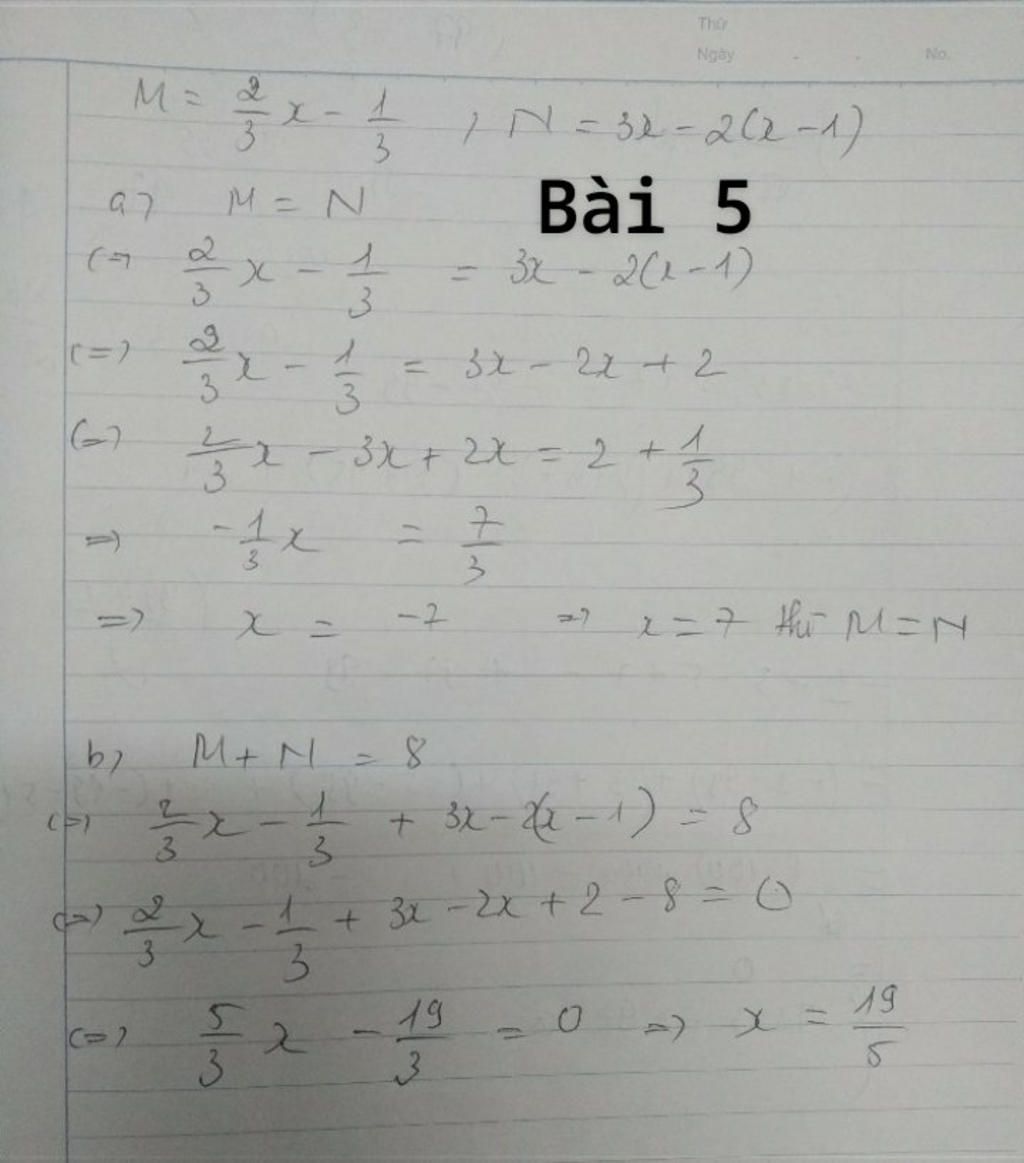 Thứ
Ngày . . No.
M = 2/3 x - 1/3 , N = 3x - 2(x - 1)
a) M = N
Bài 5
(=) 2/3 x - 1/3 = 3x - 2(x - 1)
(=) 2/3 x - 1/3 = 3x - 2x + 2
(=) 2/3 x - 3x + 2x = 2 + 1/3
=) -1/3 x = 7/3
=) x = -7 =) x = 7 thì M = N
b) M + N = 8
(=) 2/3 x - 1/3 + 3x - 2(x - 1) = 8
(=) 2/3 x - 1/3 + 3x - 2x + 2 - 8 = 0
(=) 5/3 x - 19/3 = 0 =) x = 19/5